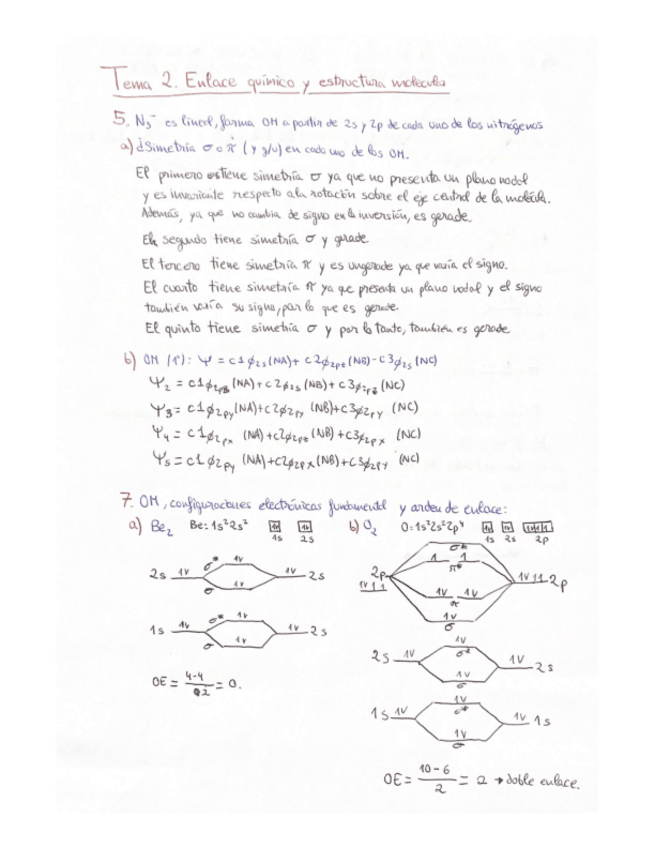 Tema 2. Enlace químico y estructura molecular
5. N3⁻ es lineal, forma OM a partir de 2s y 2p de cada uno de los nitrógenos
a) ¿Simetría σ o π (y g/u) en cada uno de los OM.
El primero tiene simetría σ ya que no presenta un plano nodal
y es invariante respecto a la rotación sobre el eje central de la molécula.
Además, ya que no cambia de signo en la inversión, es gerade.
El segundo tiene simetría σ y gerade.
El tercero tiene simetría π y es ungerade ya que varía el signo.
El cuarto tiene simetría π ya que presenta un plano nodal y el signo
también varía su signo, por lo que es gerade.
El quinto tiene simetría σ y por lo tanto, también es gerade
b) OM (1º): Ψ = c1ϕ2s(NA) + c2ϕ2pz(NB) - c3ϕ2s(NC)
Ψ2 = c1ϕ2pz(NA) + c2ϕ2s(NB) + c3ϕ2pz(NC)
Ψ3 = c1ϕ2py(NA) + c2ϕ2py(NB) + c3ϕ2py(NC)
Ψ4 = c1ϕ2px(NA) + c2ϕ2pz(NB) + c3ϕ2px(NC)
Ψ5 = c1ϕ2py(NA) + c2ϕ2px(NB) + c3ϕ2py(NC)
7. OM, configuraciones electrónicas fundamental y orden de enlace:
a) Be2 Be: 1s²2s² 1v 1v
1s 2s
b) O2 O: 1s²2s²2p⁴ 1v 1v 1v 1 1
1s 2s 2p
2s 1v σ* 1v σ 1v 1v 2s
1s 1v σ* 1v σ 1v 1v 2s
OE = 4-4/2 = 0.
σ*
1 1
π*
2p 1v 1 1 1v 1 1 2p
1v 1v
π
1v
σ
2s 1v 1v σ* 1v σ 1v 2s
1s 1v 1v σ* 1v σ 1v 1s
OE = 10-6/2 = 2 → doble enlace.